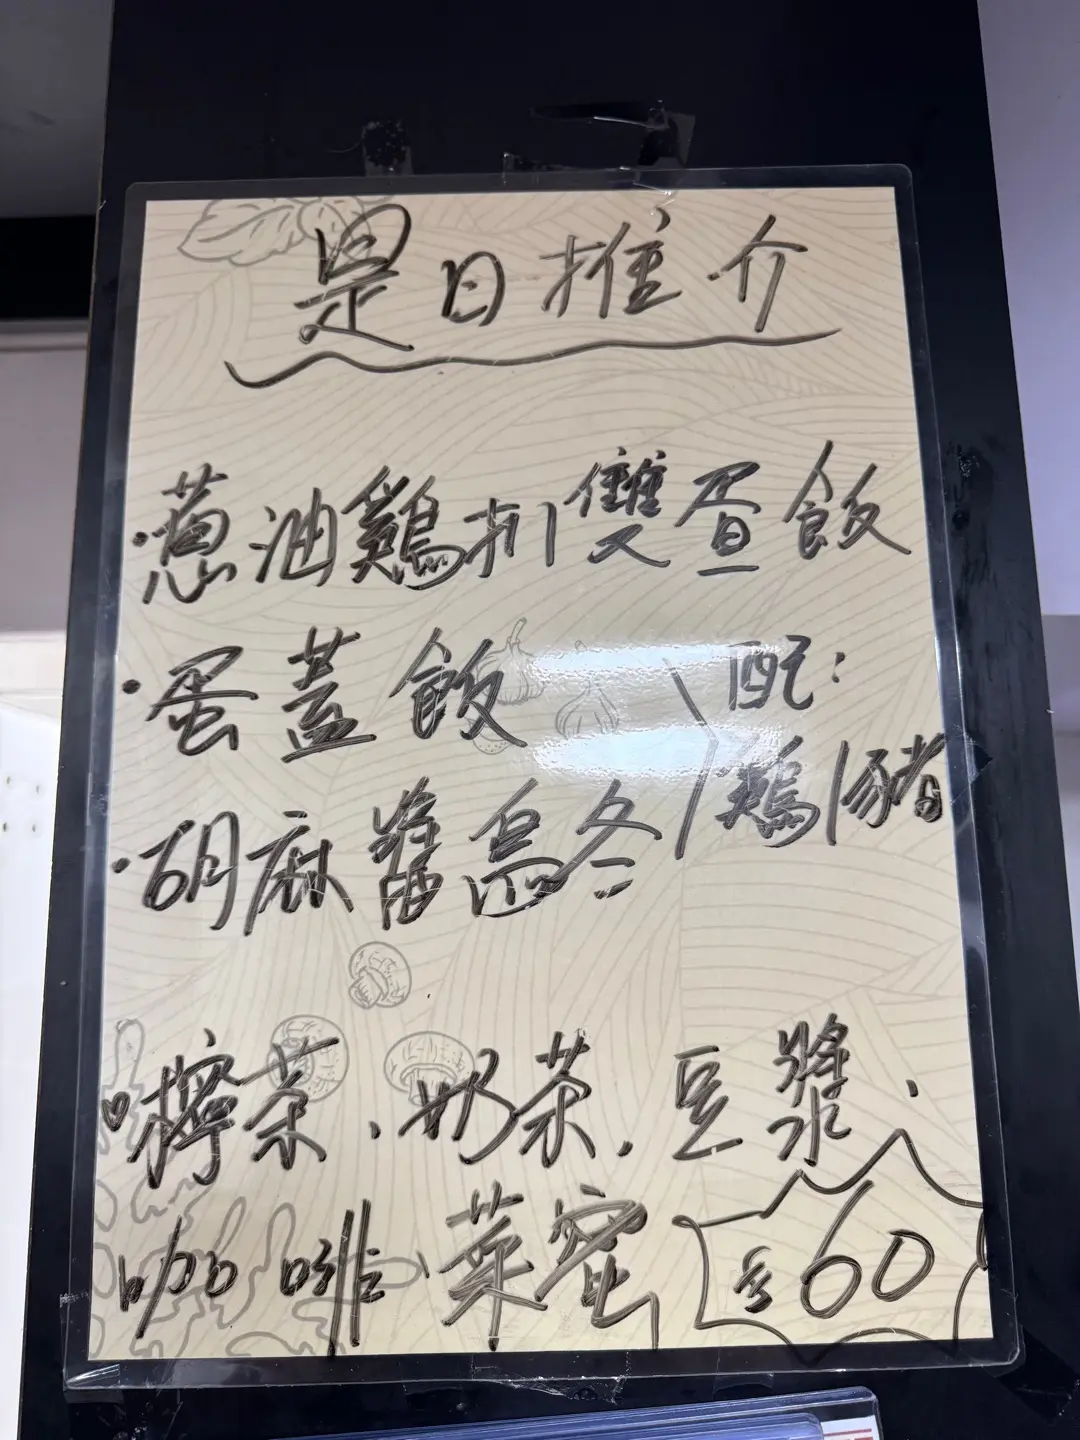 是日推介
·蔥油鷄扒雙昼飯
·蛋蓋飯
配：
·胡麻醬烏冬
鷄|豬
檸茶、奶茶、豆漿、
咖啡、菜蜜
$60